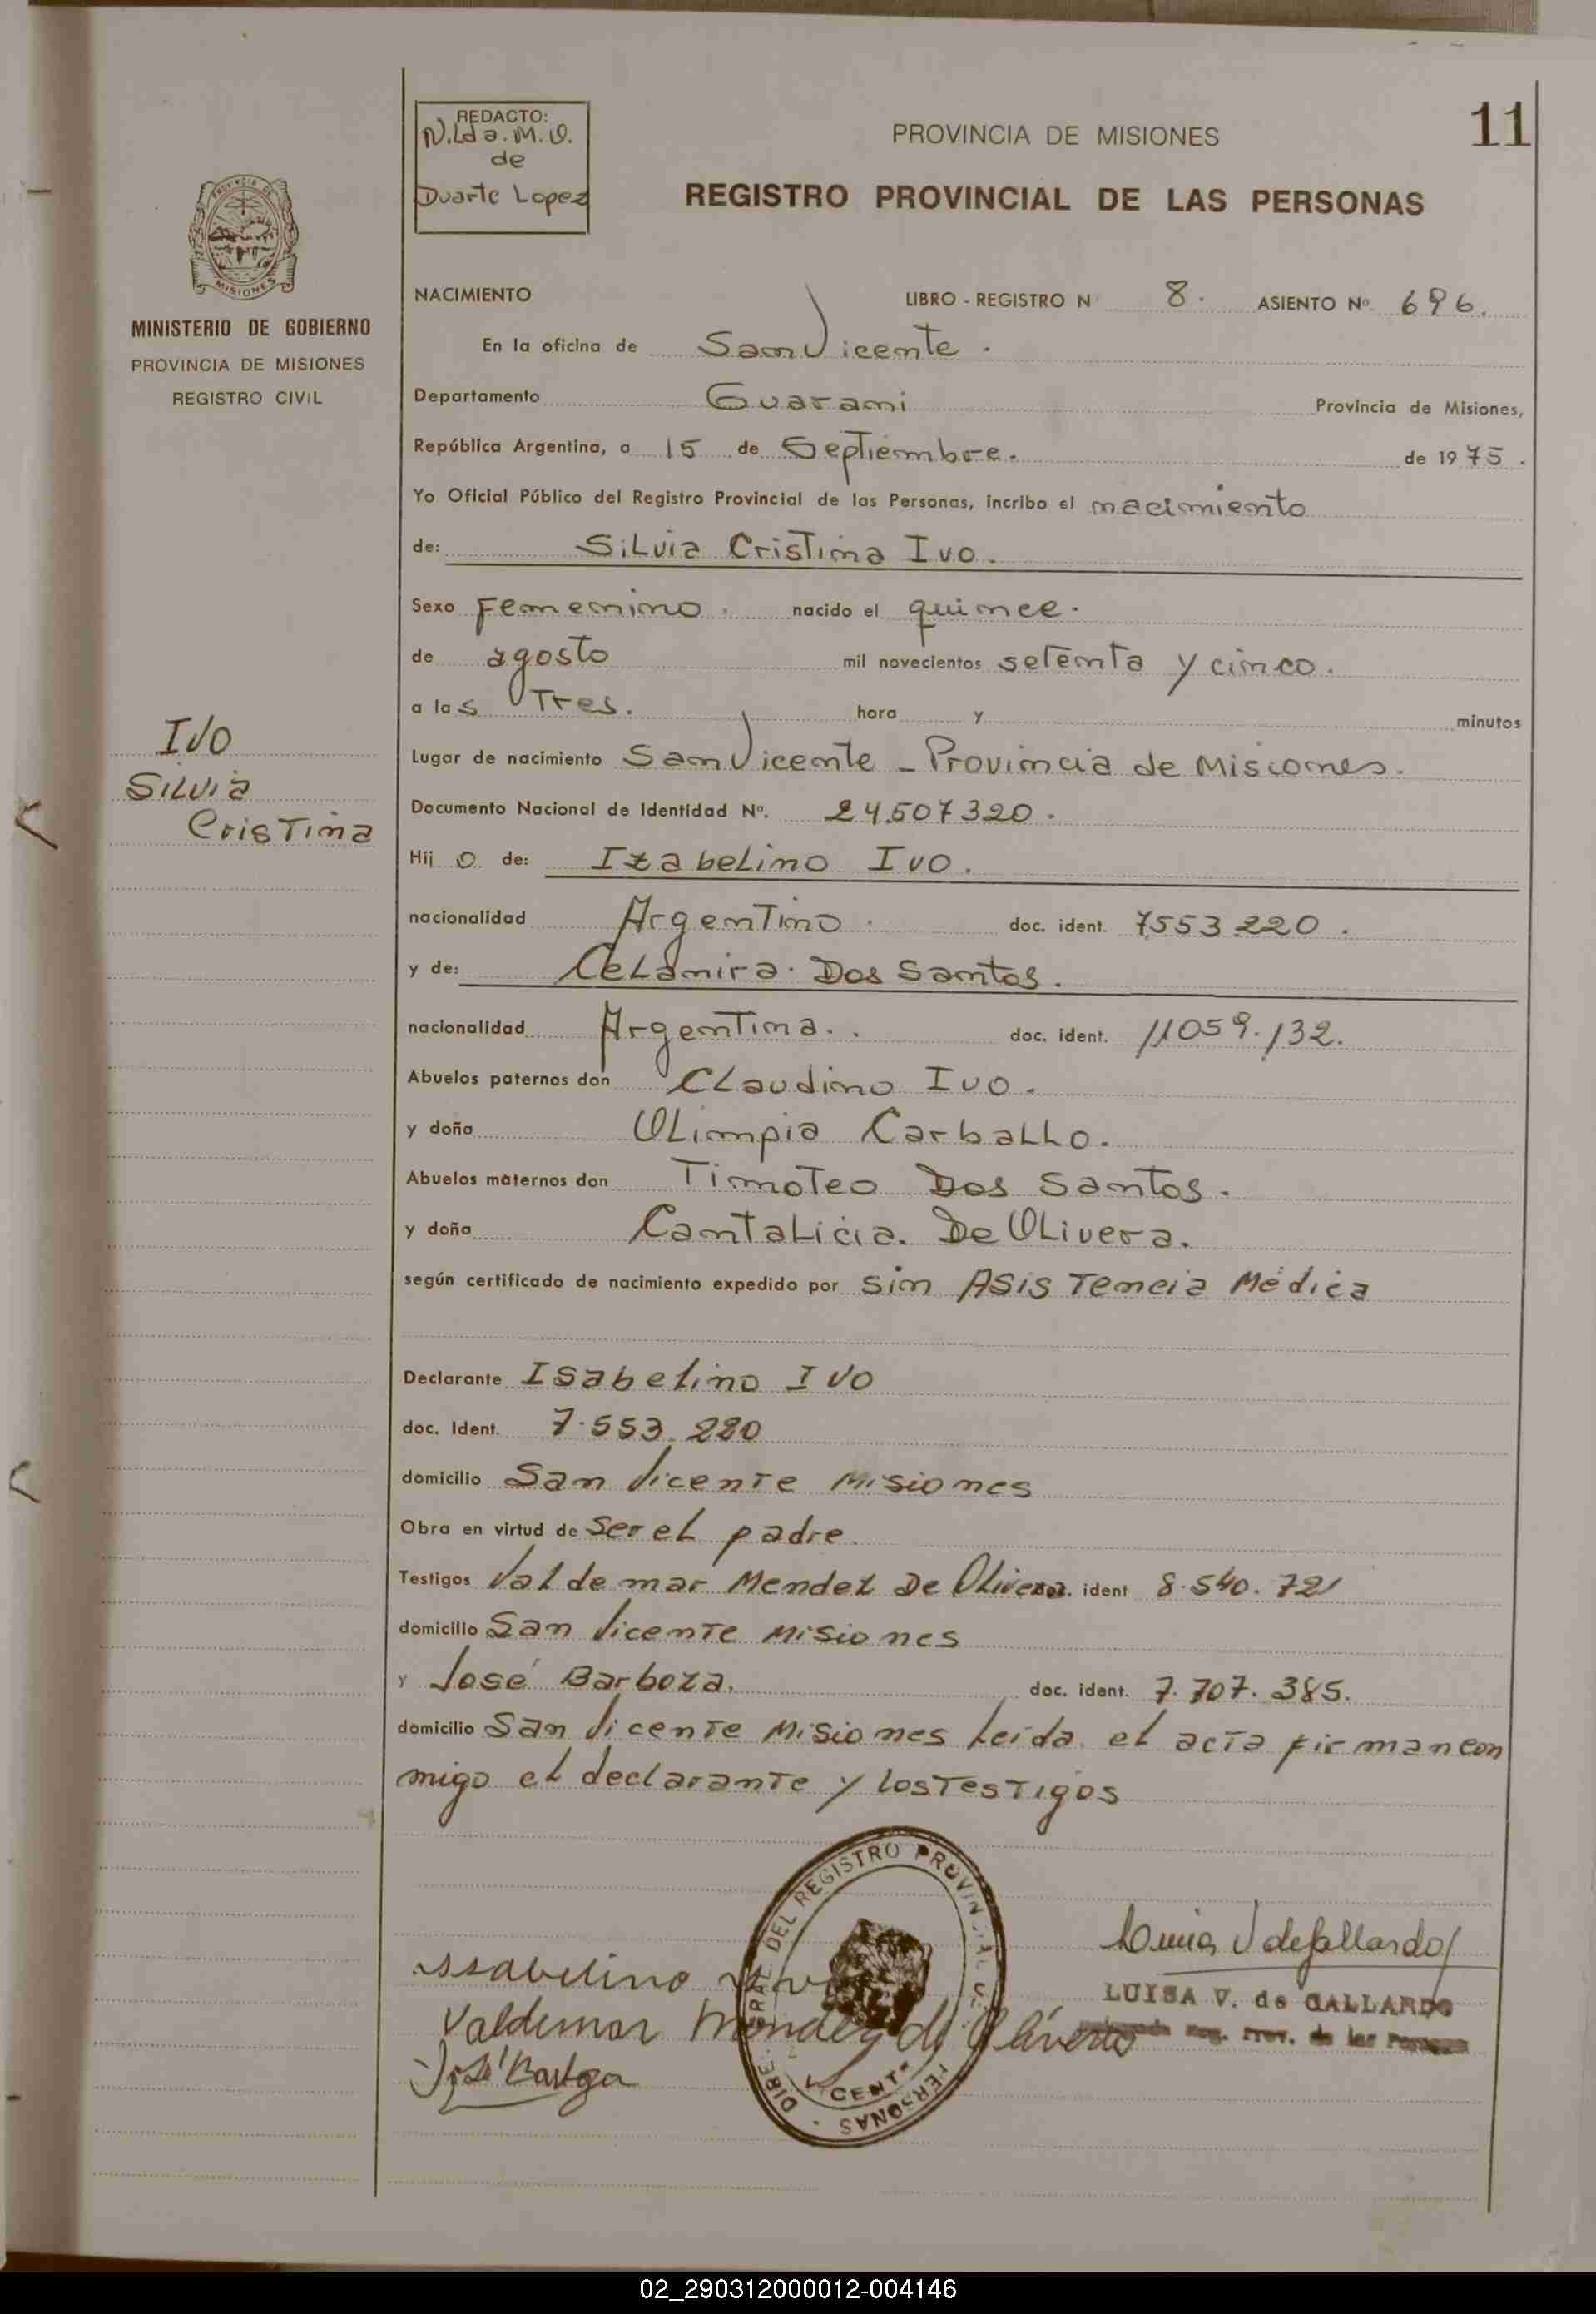 11
REDACTO:
N.Lda.M.O.
de
Duarte Lopez
PROVINCIA DE MISIONES
REGISTRO PROVINCIAL DE LAS PERSONAS
MISIONES
MINISTERIO DE GOBIERNO
PROVINCIA DE MISIONES
REGISTRO CIVIL
NACIMIENTO LIBRO - REGISTRO N° 8. ASIENTO Nº 696.
En la oficina de San Vicente.
Departamento Guarani Provincia de Misiones,
República Argentina, a 15 de Septiembre. de 1975.
Yo Oficial Público del Registro Provincial de las Personas, incribo el nacimiento
de: Silvia Cristina Ivo.
Sexo Femenino. nacido el quince.
de agosto mil novecientos setenta y cinco.
a las Tres. hora y minutos
Ivo
Silvia
Cristina
Lugar de nacimiento San Vicente - Provincia de Misiones.
Documento Nacional de Identidad Nº. 24.507320.
Hij o de: Izabelino Ivo.
nacionalidad Argentino. doc. ident. 7.553.220.
y de: Celanira. Dos Santos.
nacionalidad Argentina.. doc. ident. 11059.132.
Abuelos paternos don Claudino Ivo.
y doña Olimpia Carballo.
Abuelos maternos don Timoteo Dos Santos.
y doña Cantalicia. De Olivera.
según certificado de nacimiento expedido por Sin Asistencia Médica
Declarante Isabelino Ivo
doc. Ident. 7.553.220
domicilio San Vicente Misiones
Obra en virtud de Ser el padre.
Testigos Valdemar Mendez De Olivera. ident 8.540.721
domicilio San Vicente Misiones
y José Barboza. doc. ident. 7.707.385.
domicilio San Vicente Misiones Leida el acta firman con
migo el declarante y los Testigos
DEL REGISTRO PROVINCIAL
PERSONAS
Luisa V de Gallardo
LUISA V. de GALLARDO
Reg. Prov. de las Personas
Issavelino Ivo
Valdemar Mendez de Olivera
José Barboza
02_290312000012-004146